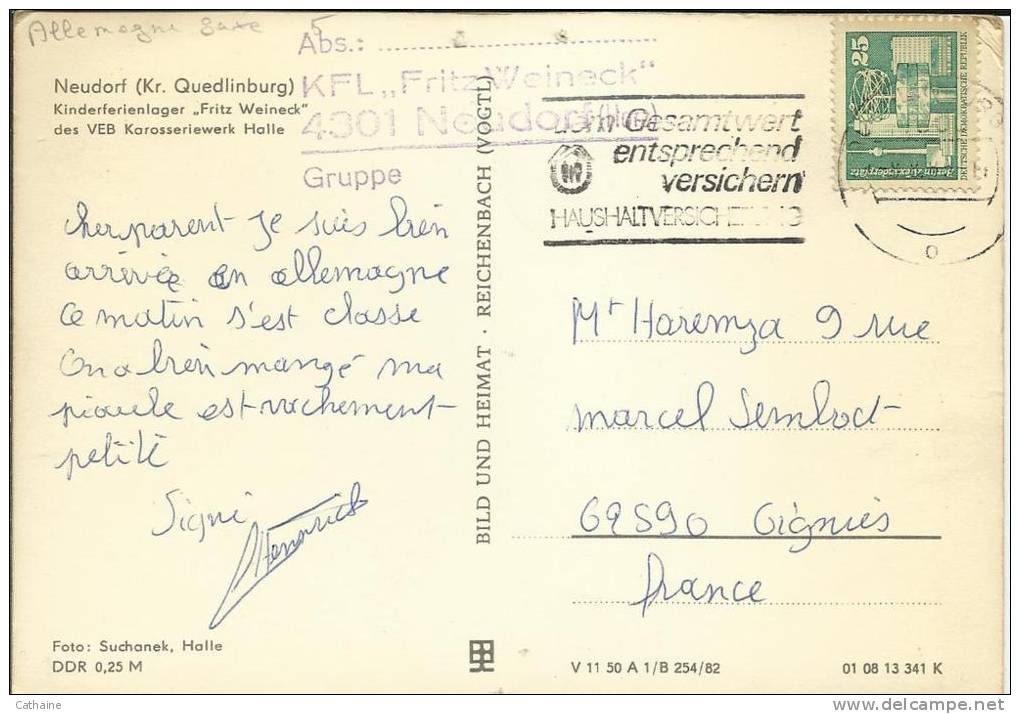 Allemagne
Abs.: 5
Neudorf (Kr. Quedlinburg)
Kinderferienlager „Fritz Weineck"
des VEB Karosseriewerk Halle
KFL „Fritz Weineck"
4301 Neudorf (Harz)
Gruppe
dem Gesamtwert
entsprechend
versichern
HAUSHALTVERSICHERUNG
25
Berlin, Alexanderplatz
DEUTSCHE DEMOKRATISCHE REPUBLIK
cher parent Je suis bien
arrivée en allemagne
ce matin s'est classe
On a bien mangé ma
piaule est vachement
petite
Signé
BILD UND HEIMAT · REICHENBACH (VOGTL)
Mr Haremza 9 rue
marcel Sembat
62590 Oignies
france
Foto: Suchanek, Halle
DDR 0,25 M
V 11 50 A 1/B 254/82
01 08 13 341 K
Cathaine
delcampe.net